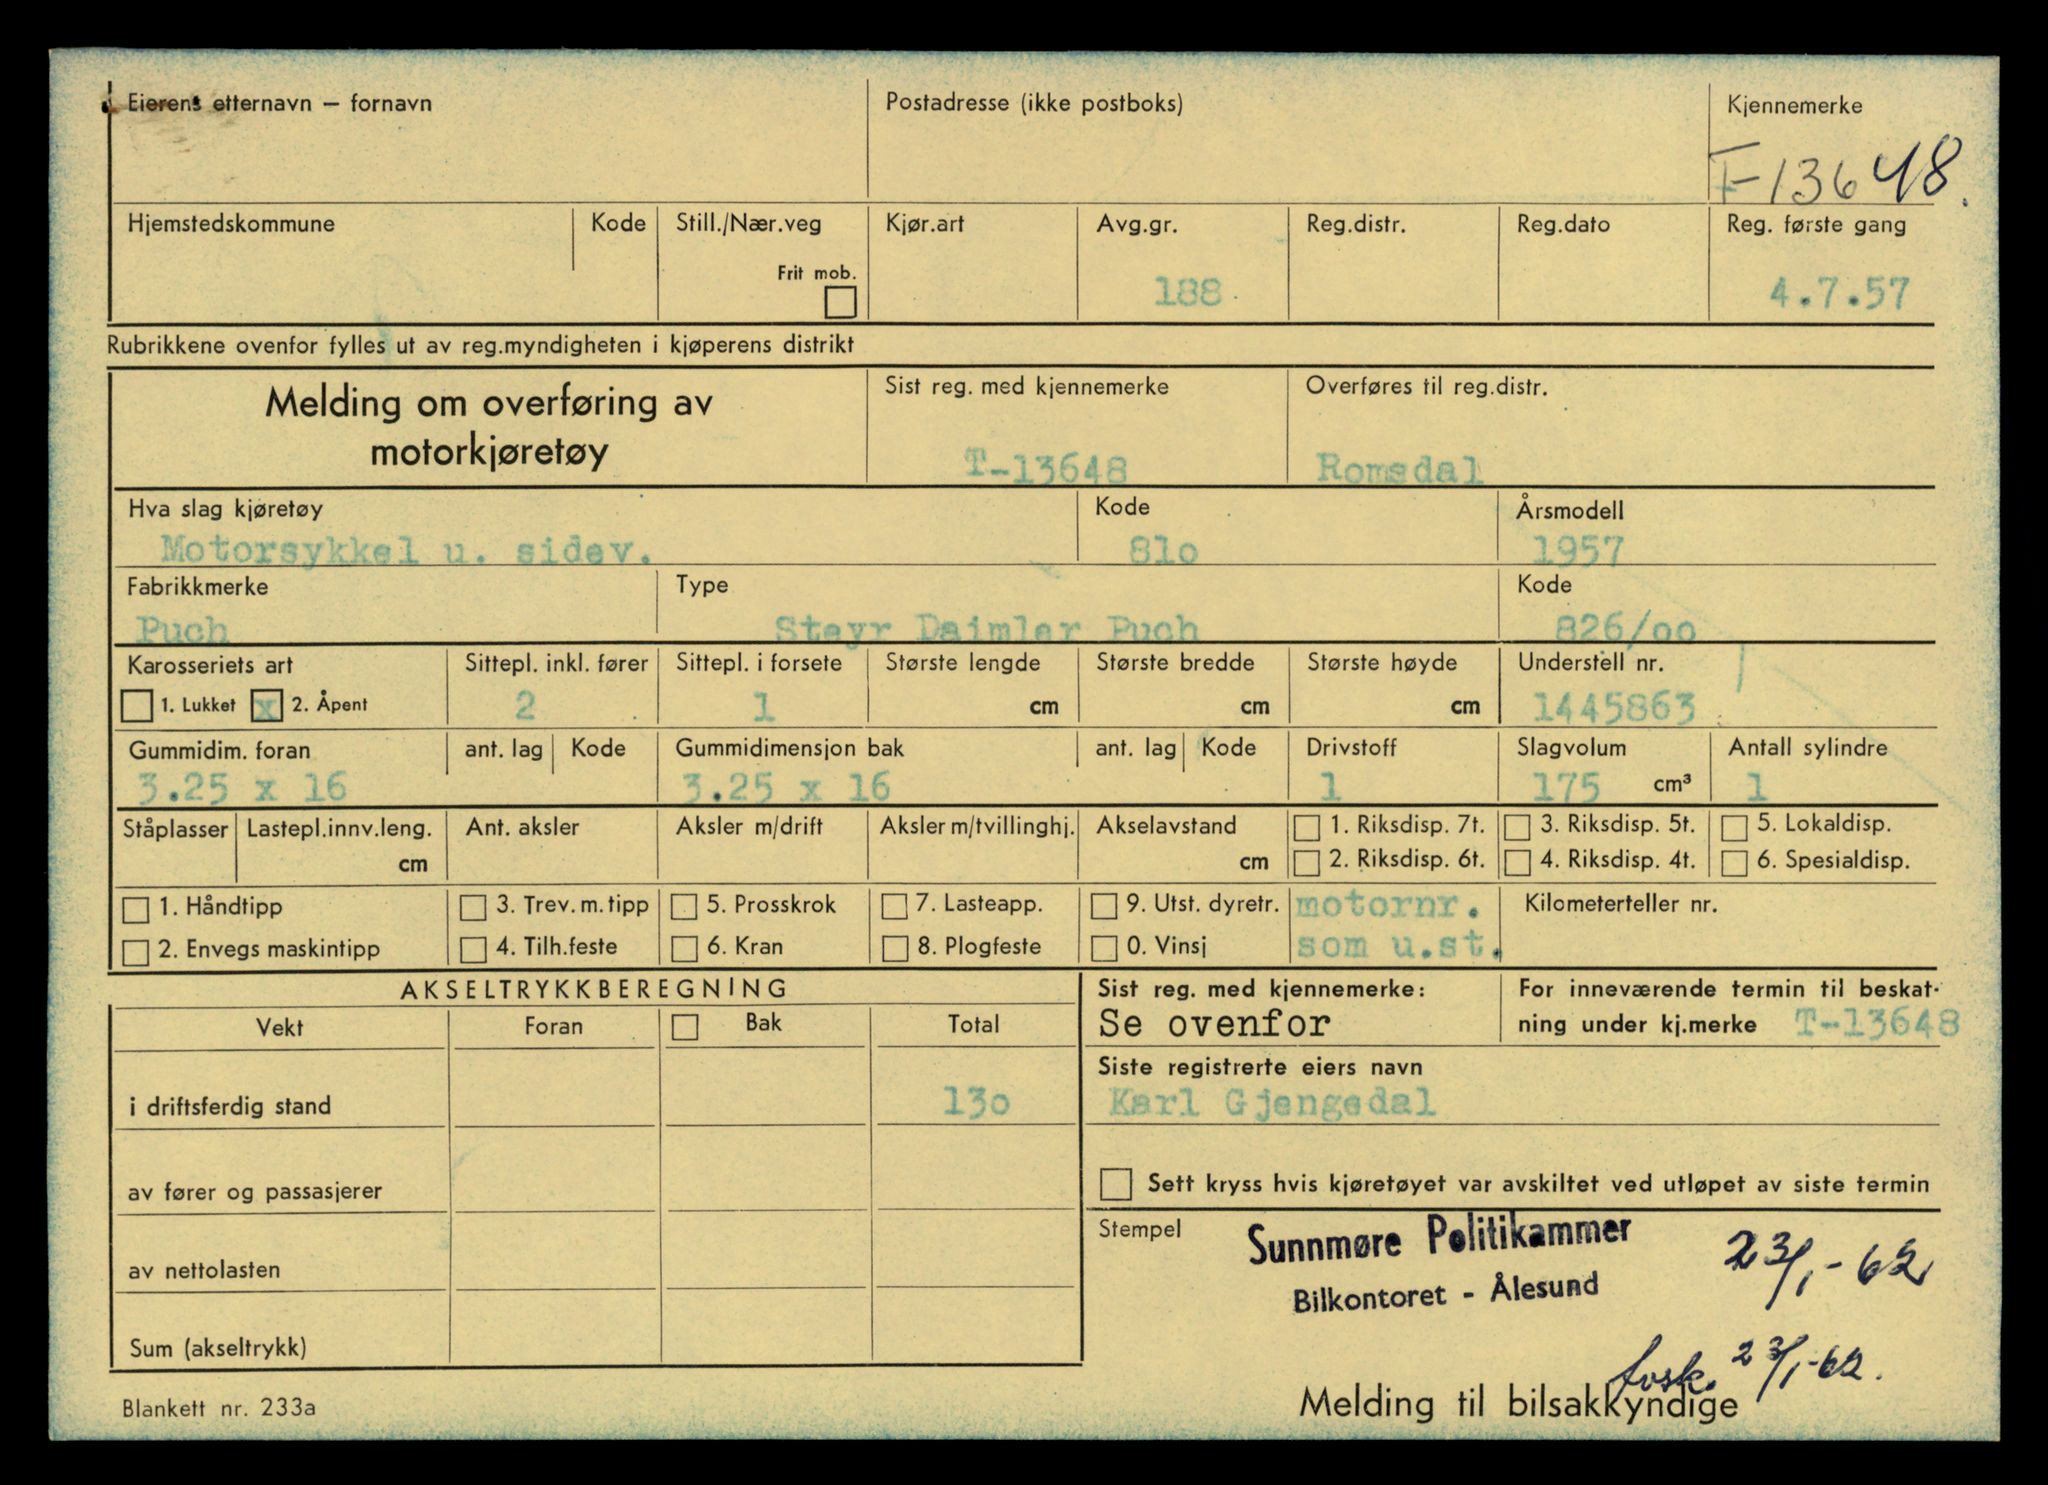 Eierens etternavn – fornavn
Postadresse (ikke postboks)
Kjennemerke
T-13648.
Hjemstedskommune
Kode
Still./Nær.veg
Frit mob.
Kjør.art
Avg.gr.
188
Reg.distr.
Reg.dato
Reg. første gang
4.7.57
Rubrikkene ovenfor fylles ut av reg.myndigheten i kjøperens distrikt
Melding om overføring av
motorkjøretøy
Sist reg. med kjennemerke
T-13648
Overføres til reg.distr.
Romsdal
Hva slag kjøretøy
Motorsykkel u. sidev.
Kode
81o
Årsmodell
1957
Fabrikkmerke
Puch
Type
Steyr Daimler Puch
Kode
826/oo
Karosseriets art
1. Lukket x 2. Åpent
Sittepl. inkl. fører
2
Sittepl. i forsete
1
Største lengde
cm
Største bredde
cm
Største høyde
cm
Understell nr.
1445863
Gummidim. foran
3.25 x 16
ant. lag
Kode
Gummidimensjon bak
3.25 x 16
ant. lag
Kode
Drivstoff
1
Slagvolum
175 cm³
Antall sylindre
1
Ståplasser
Lastepl.innv.leng.
cm
Ant. aksler
Aksler m/drift
Aksler m/tvillinghj.
Akselavstand
cm
1. Riksdisp. 7t.
2. Riksdisp. 6t.
3. Riksdisp. 5t.
4. Riksdisp. 4t.
5. Lokaldisp.
6. Spesialdisp.
1. Håndtipp
2. Envegs maskintipp
3. Trev. m. tipp
4. Tilh.feste
5. Prosskrok
6. Kran
7. Lasteapp.
8. Plogfeste
9. Utst. dyretr.
0. Vinsj
motornr.
som u.st.
Kilometerteller nr.
AKSELTRYKKBEREGNING
Vekt
Foran
Bak
Total
i driftsferdig stand
13o
av fører og passasjerer
av nettolasten
Sum (akseltrykk)
Sist reg. med kjennemerke:
Se ovenfor
For inneværende termin til beskat-
ning under kj.merke T-13648
Siste registrerte eiers navn
Karl Gjengedal
Sett kryss hvis kjøretøyet var avskiltet ved utløpet av siste termin
Stempel
Sunnmøre Politikammer
Bilkontoret - Ålesund
23/1-62
23/1-62.
Melding til bilsakkyndige
Blankett nr. 233a